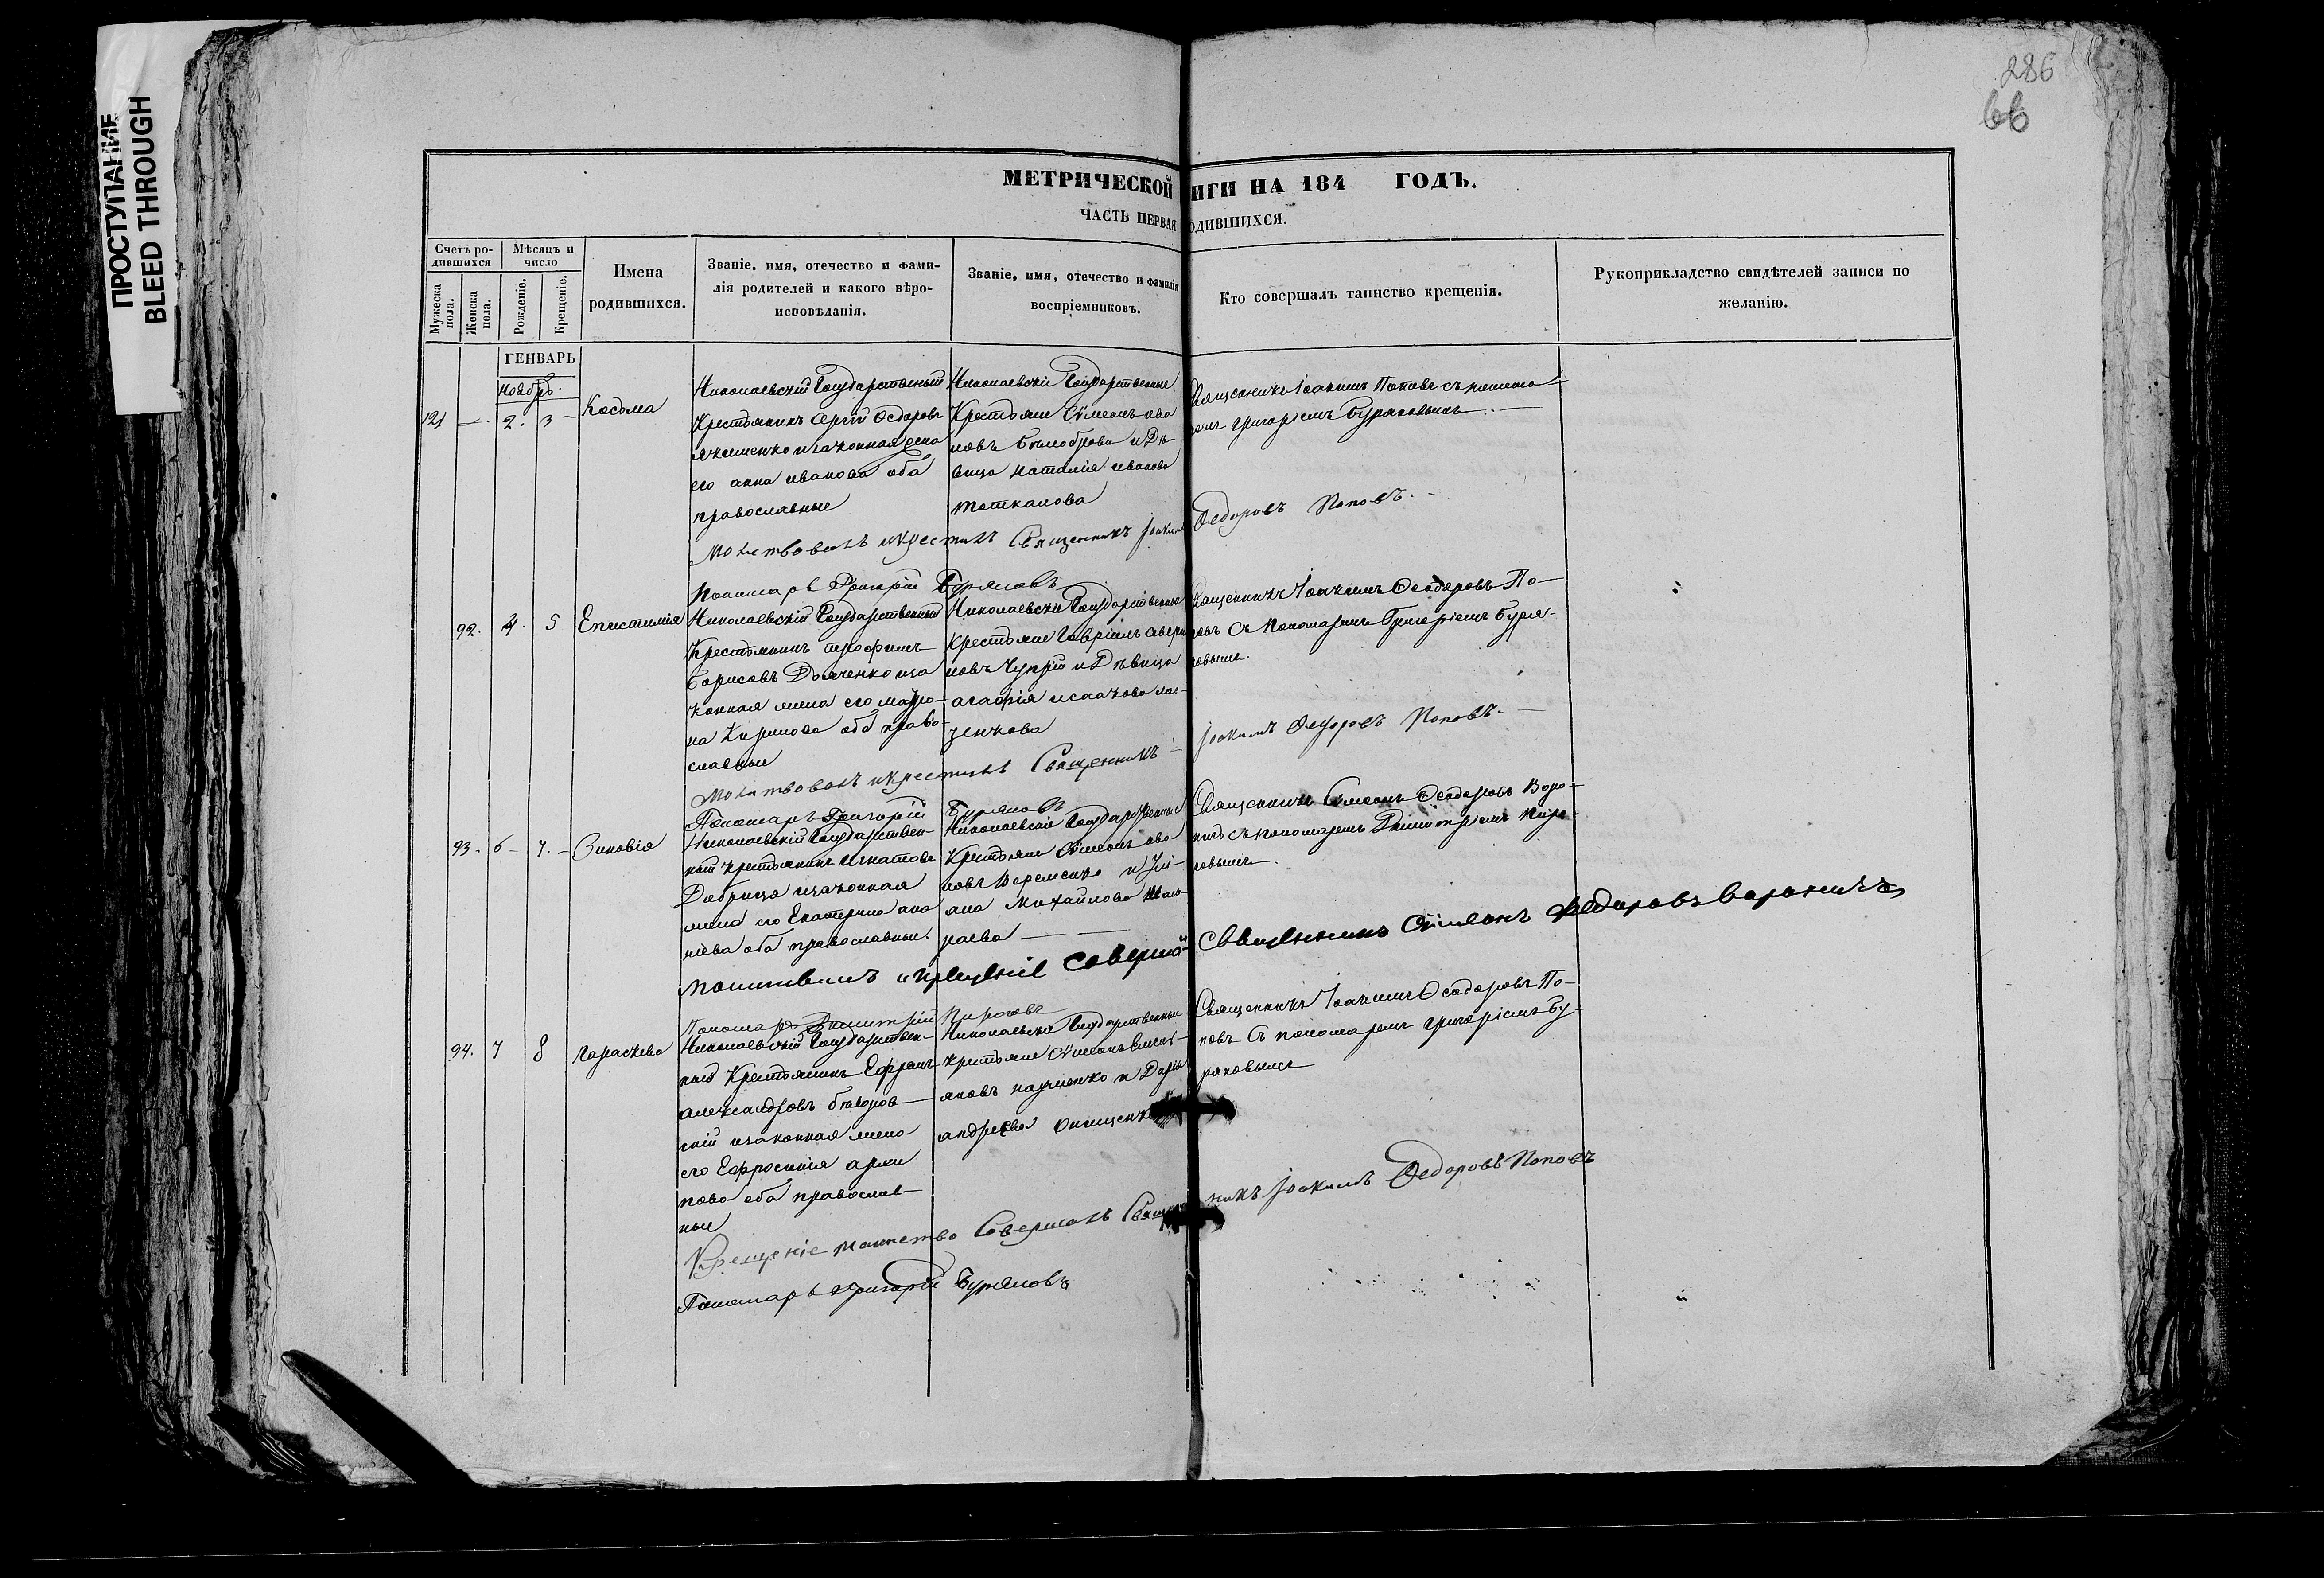 ПРОСТУПАНИЕ
BLEED THROUGH
286
66
МЕТРИЧЕСКОЙ ИГИ НА 184 ГОДЪ.
ЧАСТЬ ПЕРВАЯ ОДИВШИХСЯ.
Счетъ ро-
дившихся
Мужеска
пола.
Женска
пола.
Мѣсяцъ и
число
Рожденіе.
Крещеніе.
Имена
родившихся.
Званіе, имя, отечество и фами-
лія родителей и какого вѣро-
исповѣданія.
Званіе, имя, отечество и фамилія
воспріемниковъ.
Кто совершалъ таинство крещенія.
Рукоприкладство свидѣтелей записи по
желанію.
ГЕНВАРЬ
Ноябрь.
121 — 2. 3 —
Косьма
Николаевскій Государственный
Крестьянинъ Сергій Ѳедоровъ
Якименко и законная жена
его анна иванова оба
православные
Николаевскіе Государственные
Крестьяне Сѵмеонъ ива
новъ Бѣлобровъ и Дѣ
вица наталія иванова
Священникъ Іоакимъ Поповъ съ понома
ремъ григоріемъ Буряковымъ. —
Молитвовалъ и крестилъ Священникъ Іоакимъ Федоровъ Поповъ. -
Пономарь Григорій Буряковъ
92. 4. 5
Епистимія
Николаевскій Государственный
Крестьянинъ трофимъ
Борисовъ Дьяченко и за
конная жена его матро
на Кирилова оба право
славные
Николаевскіе Государственные
Крестьяне Гавріилъ
новъ Чуприй и Дѣвица
агафія исаакова
Священникъ Іоакимъ Ѳеодоровъ По-
повъ съ пономаремъ Григоріемъ Буря-
ковымъ.
Молитвовалъ и крестилъ Священникъ — Іоакимъ Федоровъ Поповъ. —
Пономарь Григорій Буряковъ
93. 6 — 7. —
Зиновія
Николаевскій Государствен-
ный крестьянинъ игнатовъ
Добрица и законная
жена его Екатерина ана
ніева оба православные.
Николаевскіе Государственные
Крестьяне Сѵмеонъ ива
новъ Веременко и Ули-
ана Михайлова
раева — —
Священникъ Сѵмеонъ Ѳеодоровъ Воро-
ничъ съ пономаремъ Димитріемъ Пиро-
говымъ.
Молитвовалъ и крещеніе совершалъ Священникъ Сѵмеонъ Федоровъ Вороничъ
Пономарь Димитрій Пироговъ
94. 7 8
Параскева
Николаевскій Государствен-
ный Крестьянинъ Ефремъ
александровъ
скій и законная жена
его Ефросинія
пова оба православ-
ные
Николаевскіе Государственные
крестьяне Сѵмеонъ
яновъ науменко и Дарія
андреева Онищенкова
Священникъ Іоакимъ Ѳеодоровъ По-
повъ съ пономаремъ григоріемъ Бу-
ряковымъ
Крещеніе таинство Совершалъ Священникъ Іоакимъ Федоровъ Поповъ
Пономарь Григорій Буряковъ